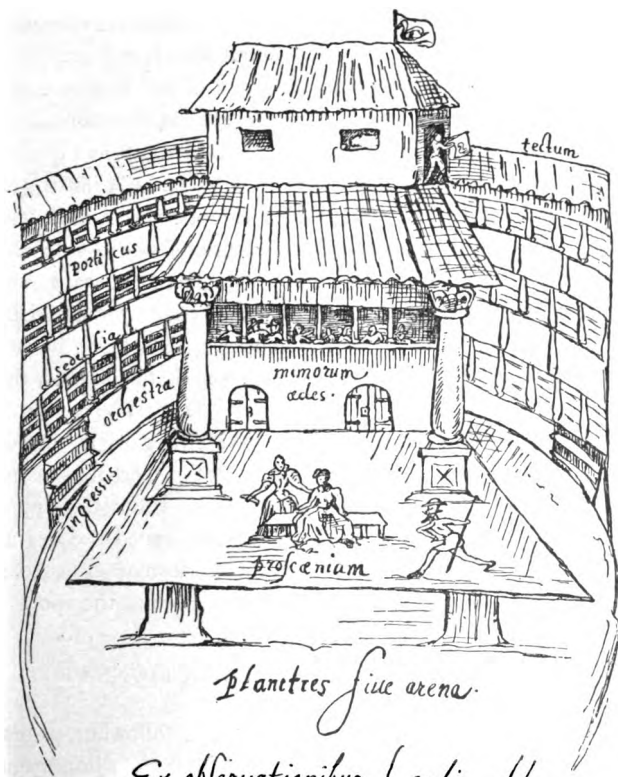 tectum
porticus
sedilia
orchestra
mimorum
ædes.
ingressus
proscænium
planities siue arena.
Ex obseruationibus